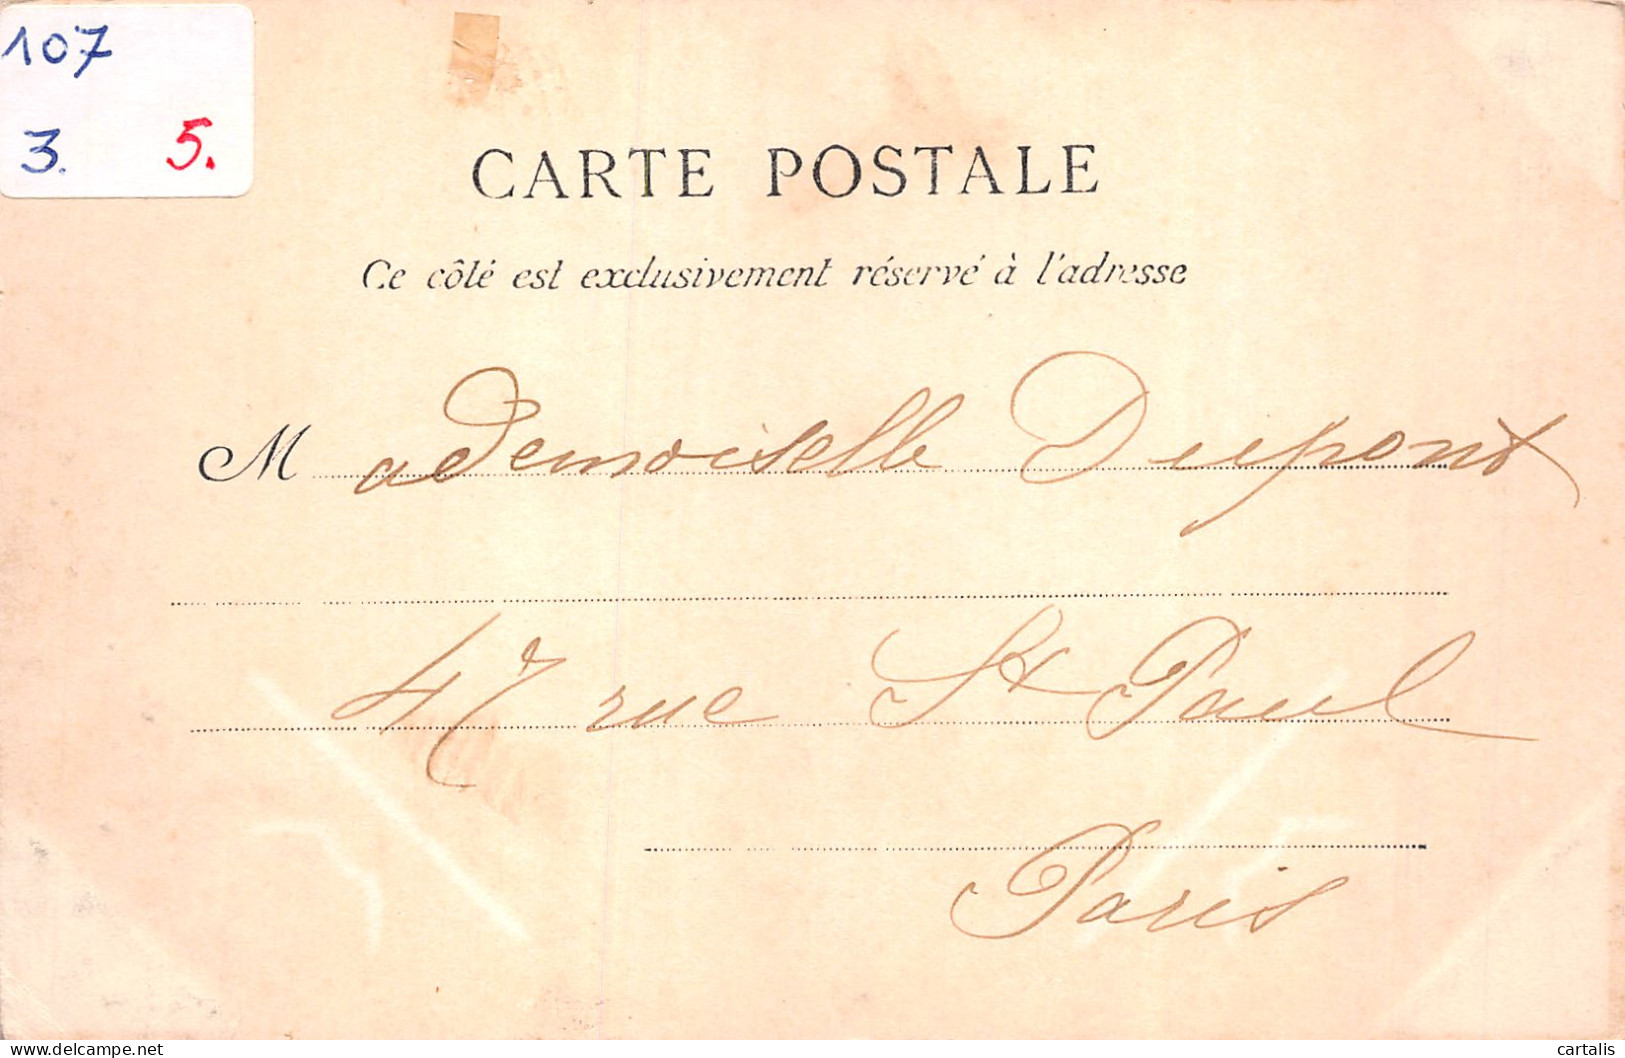 107
3. 5.
CARTE POSTALE
Ce côté est exclusivement réservé à l'adresse
Mademoiselle Dupont
47 rue St Paul
Paris
delcampe.net
cartalis